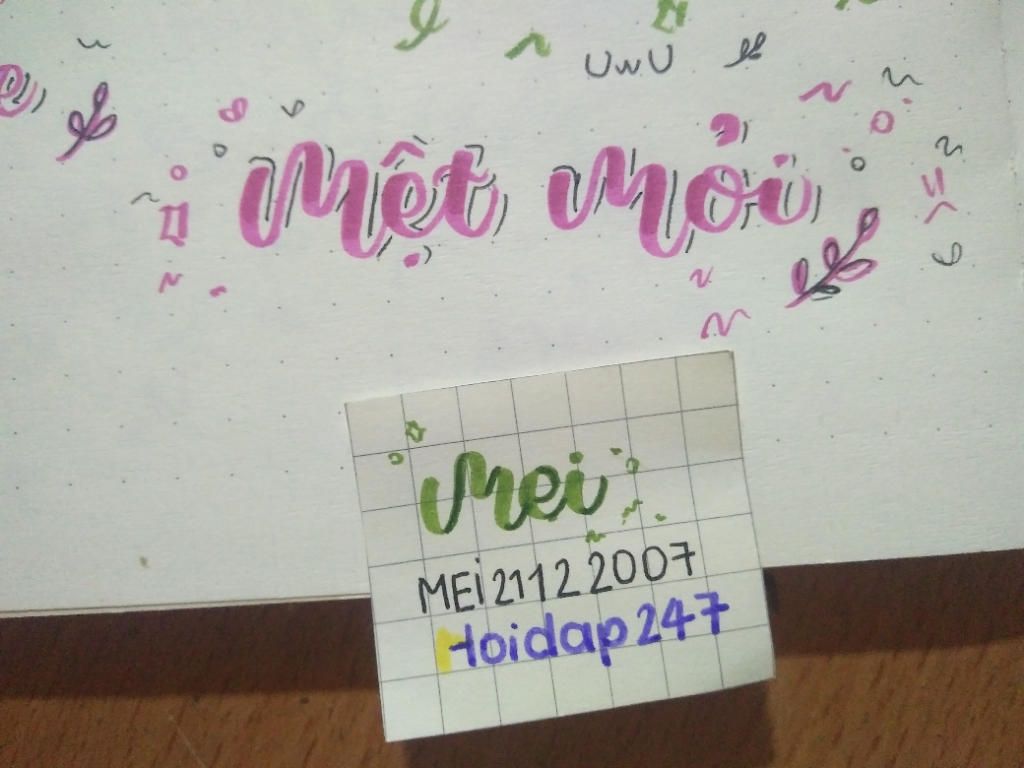 UwU
Mệt Mỏi
Mei
MEi21122007
Hoidap247